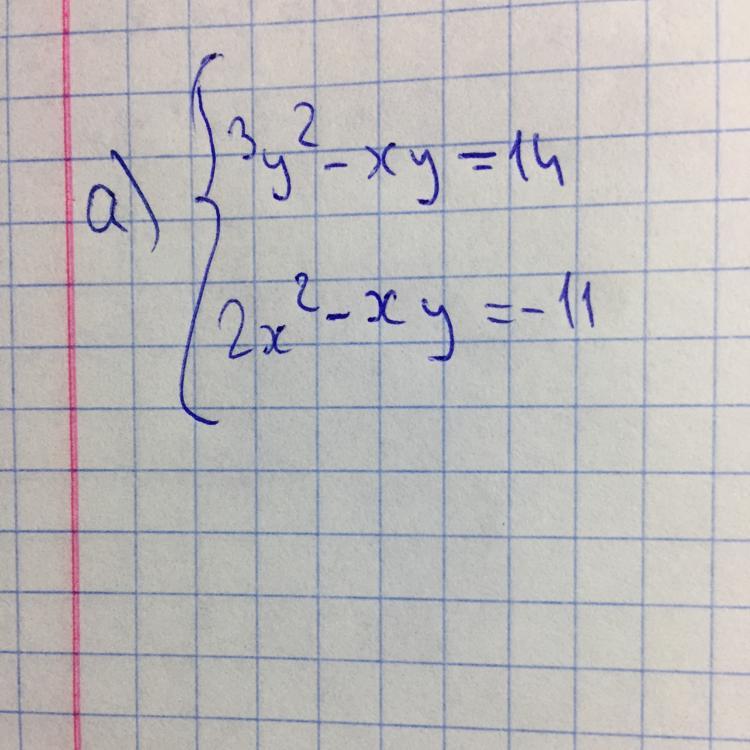 а) { 3y² - xy = 14
2x² - xy = -11